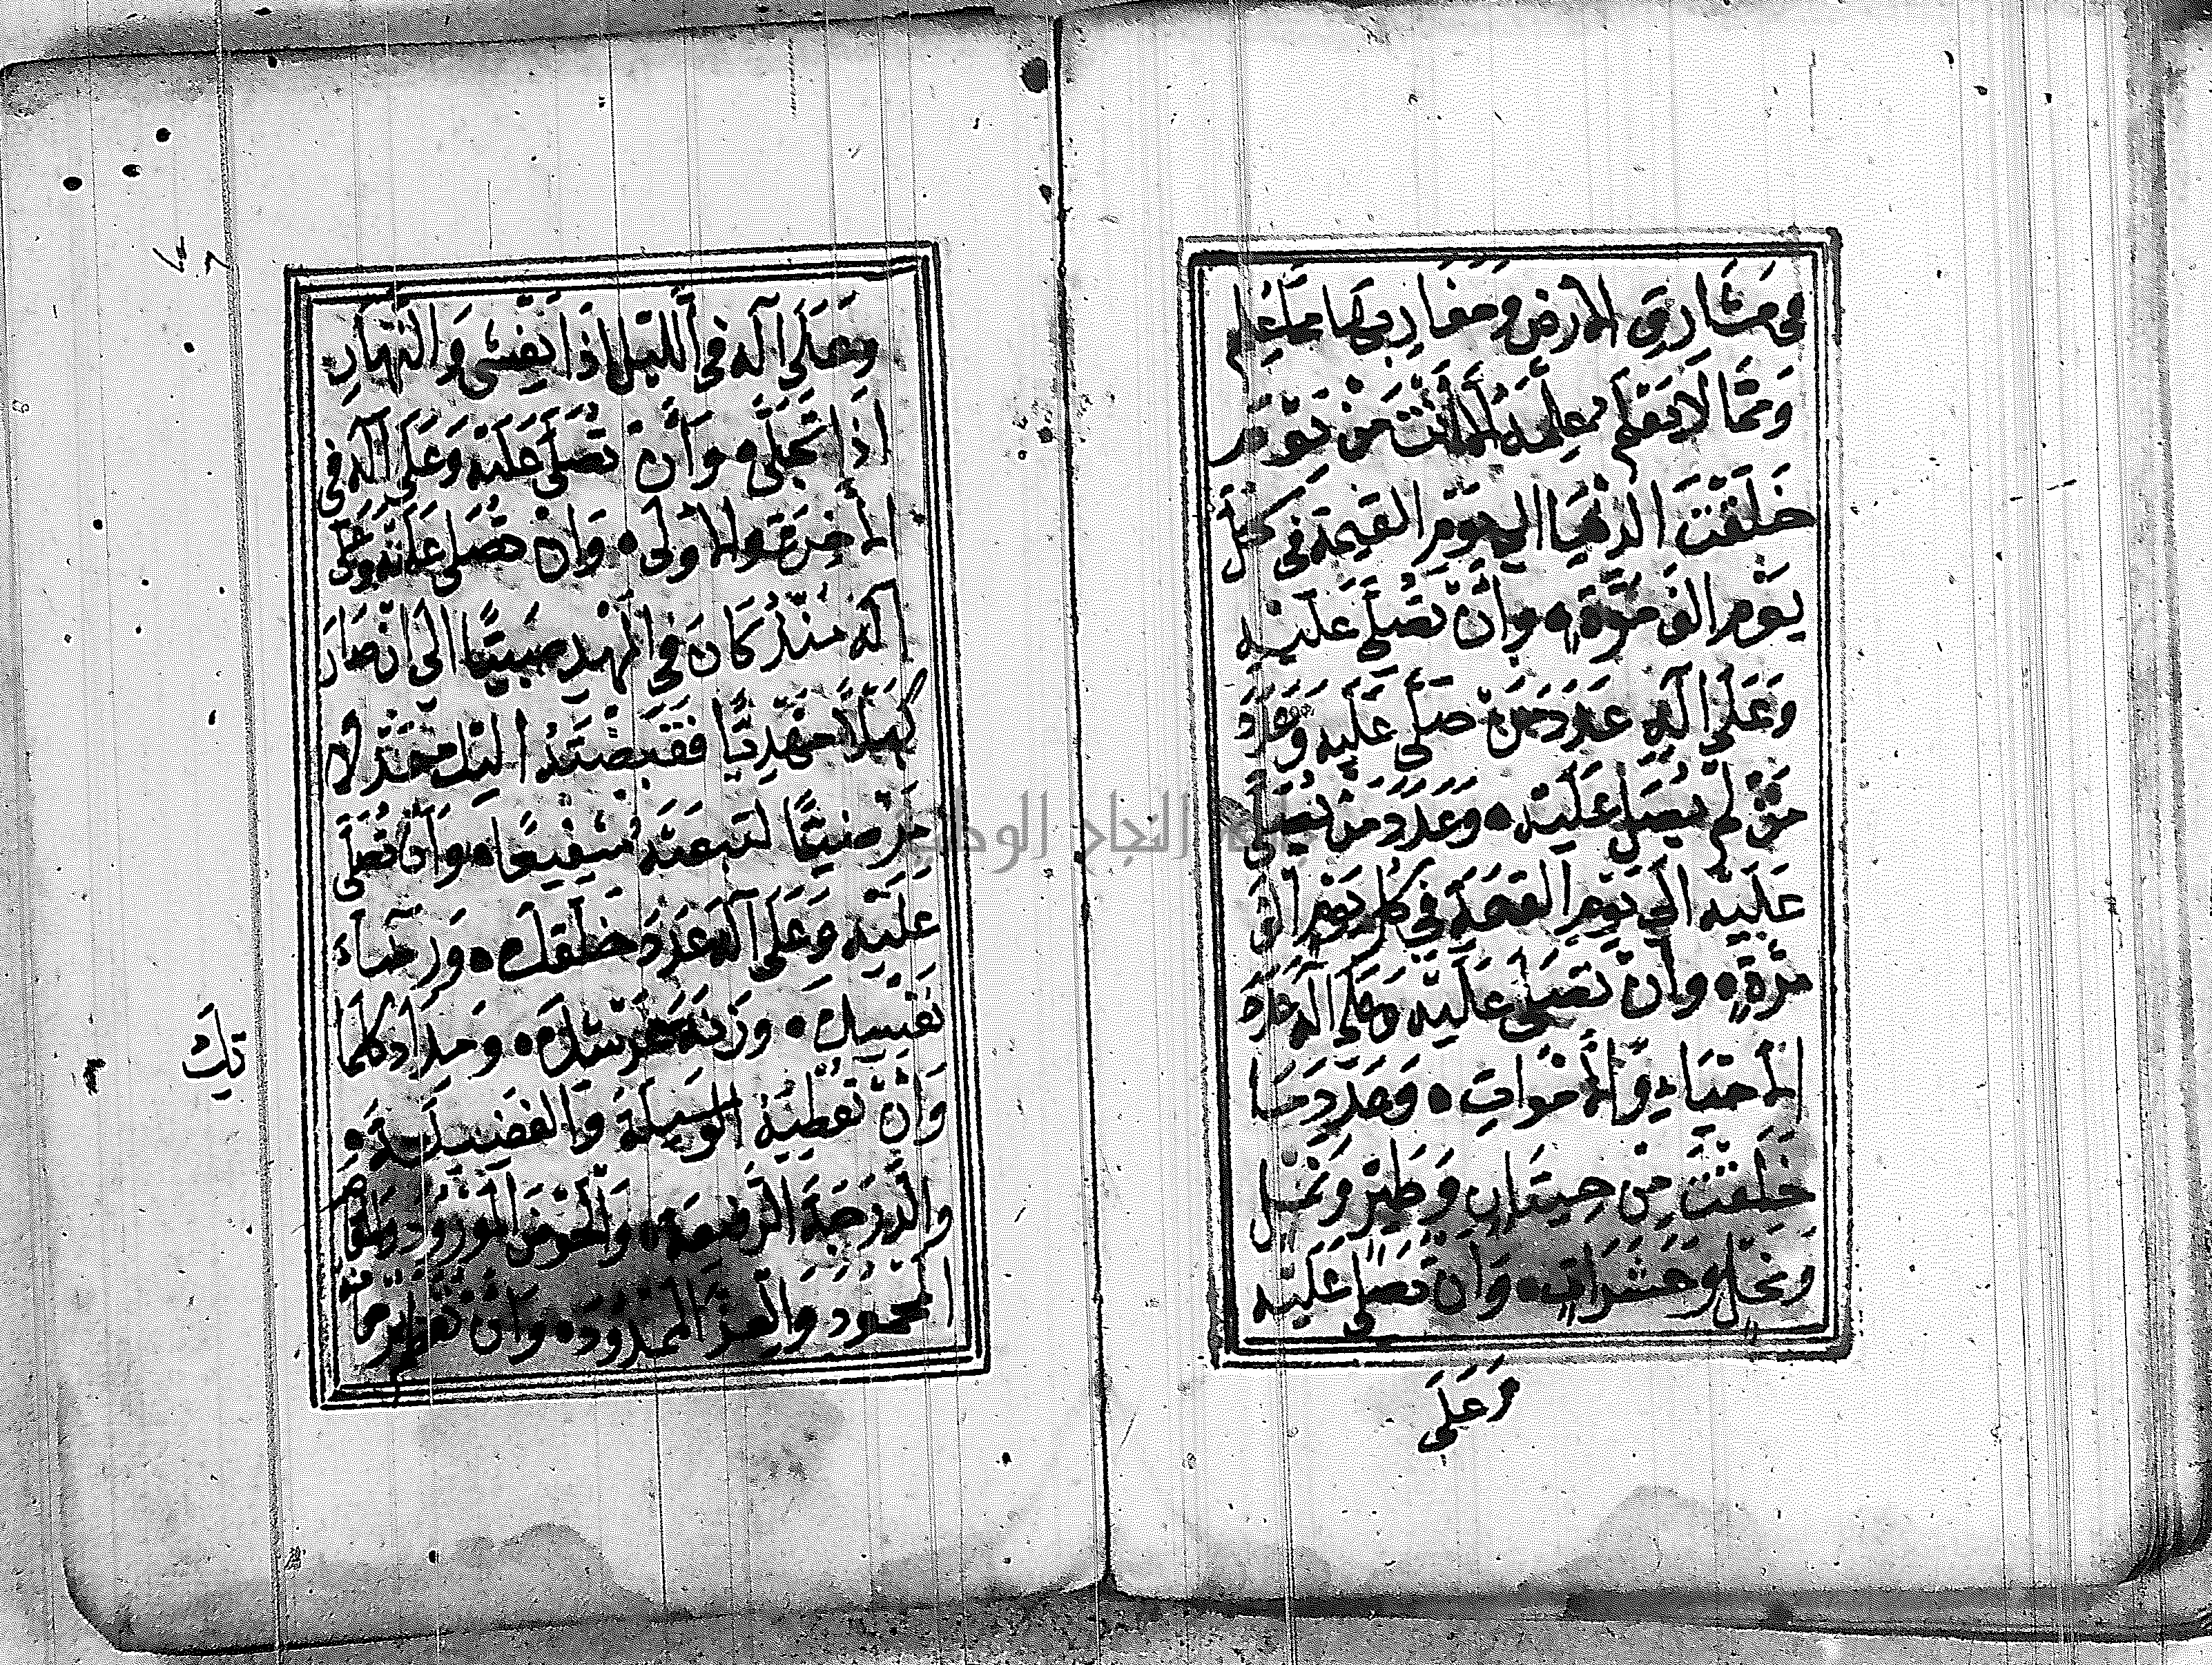 في مَشَارِقِ الأرضِ وَمَغَارِبِهَا مِمَّا عُلِم
وَمِمَّا لَا يَعْلَم بِعلِمُهُ إلَّا أَنْتَ مِنْ يَوْمَ
خَلَقْتَ الدُّنْيَا إلى يَوْمِ القِيمَةِ فى كُلِّ
يَوْمٍ الفَ مَرَّةٍ وَأَنْ تُصَلّىَ عَلَيْهِ
وَعَلَى آلِهِ عَدَدَ مَنْ صَلَّى عَلَيْهِ وَعَدَدَ
مَنْ لَمْ يُصَلِّ عَلَيْهِ وَعَدَدَ مَنْ يُصَلِّى
عَلَيْهِ الَى يَوْمِ القِيمَةِ فِى كُلِّ يَوْمٍ الفَ
مَرَّةٍ وَأَنْ تُصَلِّىَ عَلَيْهِ وَعَلَى آلِهِ عَدَدَ
الأَحْيَاءِ وَالأَمْوَاتِ وَعَدَدَ مَا
خَلَقْتَ مِنْ حِيتَانٍ وَطَيْرٍ وَنَمْلٍ
وَنَحْلٍ وَحَشَرَاتٍ وَأَنْ تُصَلّىَ عَلَيْهِ
وَعَلَى
وَعَلَى آلِهِ فِى اللَّيْلِ إذَا يَغْشَى وَالنَّهَارِ
اذَا تَجَلَّى وَأَنْ تُصَلِّىَ عَلَيْهِ وَعَلَى آلِهِ فِى
الأَخِرَةِ وَالأُولَى وَأَنْ تُصَلِّىَ عَلَيْهِ وَعَلَى
آلِهِ مُنْذُ كَانَ فِى الْمَهْدِ صَبِيًّا الَى انْ صَارَ
كَهْلًا مَهْدِيًّا فَقَبَضْتَهُ الَيْكَ عَدْلًا
مَرْضِيًّا لِتَبْعَثَهُ شَفِيعًا وَأَنْ تُصَلِّىَ
عَلَيْهِ وَعَلَى آلِهِ عَدَدَ خَلْقِكَ وَرِضَاءَ
نَفْسِكَ وَزِنَةَ عَرْشِكَ وَمِدَادَ كَلِمَا
تِكَ
وَأَنْ تُعْطِيَهُ الْوَسِيلَةَ وَالْفَضِيلَةَ
وَالدَّرَجَةَ الرَّفِيعَةَ وَالْحَوْضَ الْمَوْرُودَ وَالْمَقَا
مَ
الْمَحْمُودَ وَالْعِزَّ الْمَمْدُودَ وَأَنْ تُعَظِّمَ
جامعة النجاح الوطنية